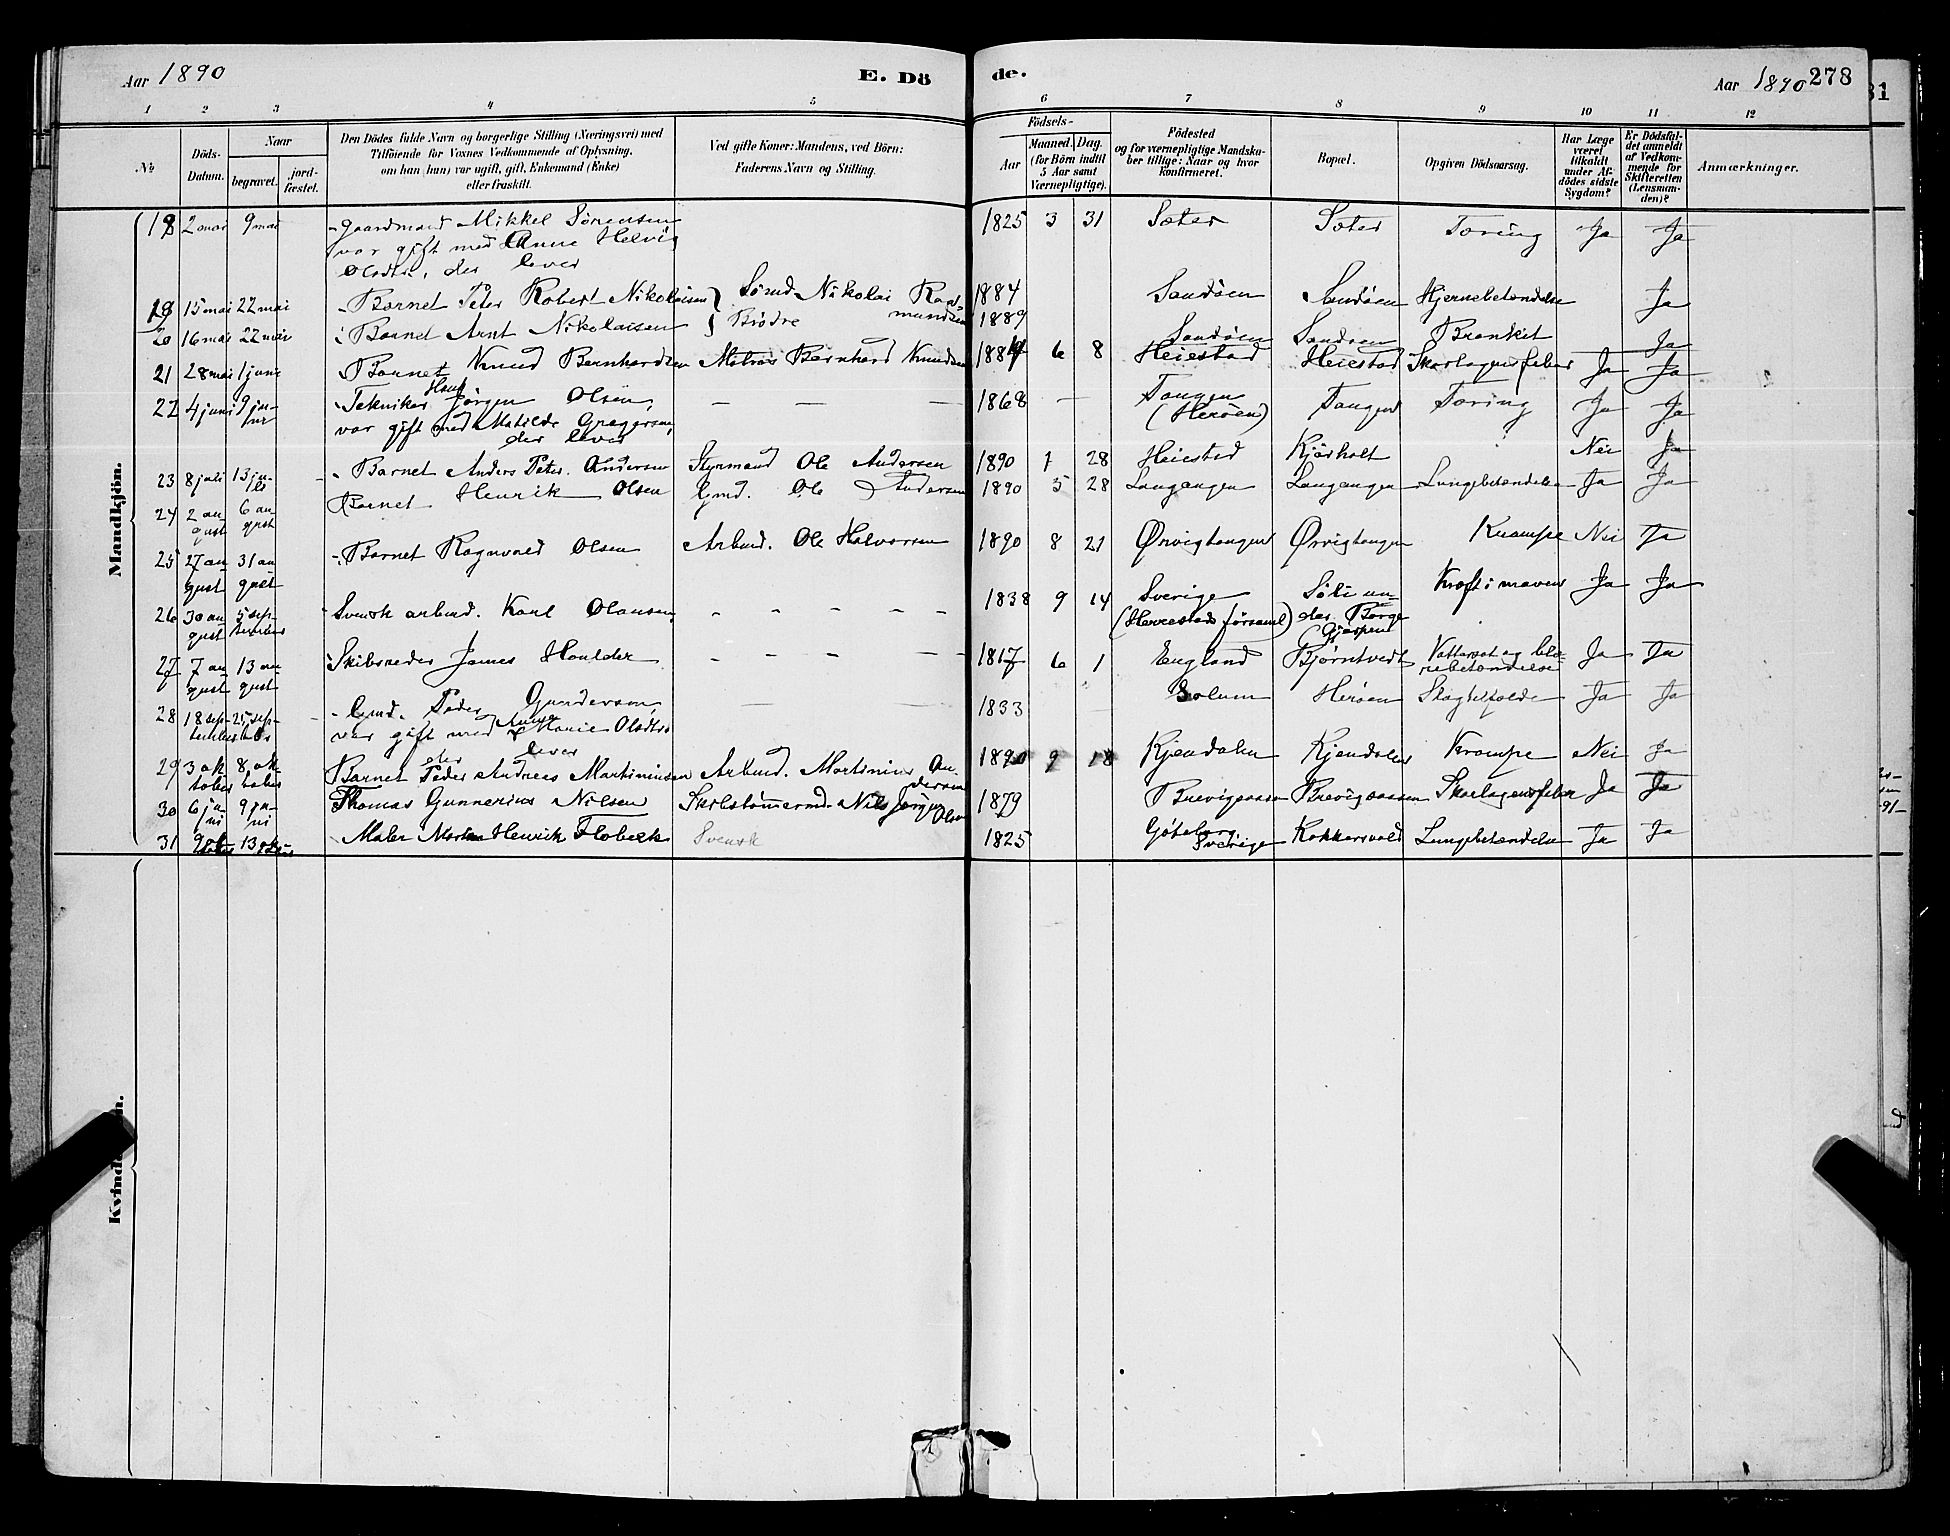 Aar 1890
E. Dö
de.
Aar 1890
278
31
1 2 3 4 5 6 7 8 9 10 11 12
No
Döds-
Datum.
Naar
begravet.
jord-
fæstet.
Den Dödes fulde Navn og borgerlige Stilling (Næringsvei) med
Tilföiende for Voxnes Vedkommende af Oplysning,
om han (hun) var ugift, gift, Enkemand (Enke)
eller fraskilt.
Ved gifte Koner: Mandens, ved Börn:
Faderens Navn og Stilling.
Födsels-
Aar
Maaned. Dag.
(for Börn indtil
5 Aar samt
Værnepligtige).
Födested
og for værnepligtige Mandska-
ber tillige: Naar og hvor
konfirmeret.
Bopæl.
Opgiven Dödsaarsag.
Har Læge
været
tilkaldt
under Af-
dödes sidste
Sygdom?
Er Dödsfal-
det anmeldt
af Vedkom-
mende for
Skifteretten
(Lensman-
den)?
Anmærkninger.
Mandkjön.
18 2 mai 9 mai Gaardmand Mikkel Sörensen 1825 3 31 Sæter Sæter Tæring Ja Ja
var gift med Anne Helvig
Olsdtr, der lever
19 15 mai 22 mai Barnet Peter Robert Nikolaisen Sömd. Nikolai 1884 Sandöen Sandöen Hjernebetændelse Ja
20 16 mai 22 mai Barnet Arnt Nikolaisen Brödre 1889 Sandöen Sandöen Bronkit Ja
21 28 mai 1 juni Barnet Knud Bernhardsen Matros Bernhard Knudsen 1884 6 8 Heiestad Heiestad Skarlagensfeber Ja Ja
22 4 juni 9 ju-
ni Tekniker Hans Jörgen Olsen, — — — 1868 — Tangen (Heröen) Tangen Tæring Ja Ja
var gift med Matilde Gregersen,
der lever
23 8 juli 13 ju-
li Barnet Anders Peter Andersen Styrmand Ole Andersen 1890 1 28 Heiestad Kjörholt Nei Ja
24 2 au-
gust 6 au-
gust Barnet Henrik Olsen Gmd. Ole Andersen 1890 5 28 Langangen Langangen Lungebetændelse Ja Ja
25 27 au-
gust 31 au-
gust Barnet Ragnvald Olsen Arbmd. Ole Halvorsen 1890 8 21 Ørvigtangen Ørvigtangen Krampe Nei Ja
26 30 au-
gust 5 sep-
tember Svensk arbmd. Karl Olausen, - - - - - 1838 9 14 Sverige
(Herrestads församl) Söli un-
der Borge
Gjerpen Kræft i maven Ja Ja
27 7 au-
gust 13 au-
gust Skibsreder James Houlder — — — — 1817 6 1 England Björntvedt Vattersot og blæ-
rebetændelse Ja Ja
28 18 sep-
tember 25 sep-
tember Gmd. Peder Gundersen, 1833 Solum Heröen Ja Ja
var gift med Anne Marie Olsdtr
der lever
29 3 ok-
tober 8 ok-
tober Barnet Peder Andreas Martiniusen Arbmd. Martinius An-
dersen 1890 9 18 Kjendalen Kjendalen Krampe Nei Ja
30 6 ju-
ni 9 ju-
ni Thomas Gunnerius Nilsen Skibstömermd. Nils Jörgen Olsen 1879 Brevigaasen Brevigaasen Skarlagensfeber Ja Ja
31 9 ok-
tober 13 oktober Maler Morten Henrik Flobeck Svensk 1825 Göteborg
Sverige Kokkersvold Lungebetændelse Ja Ja